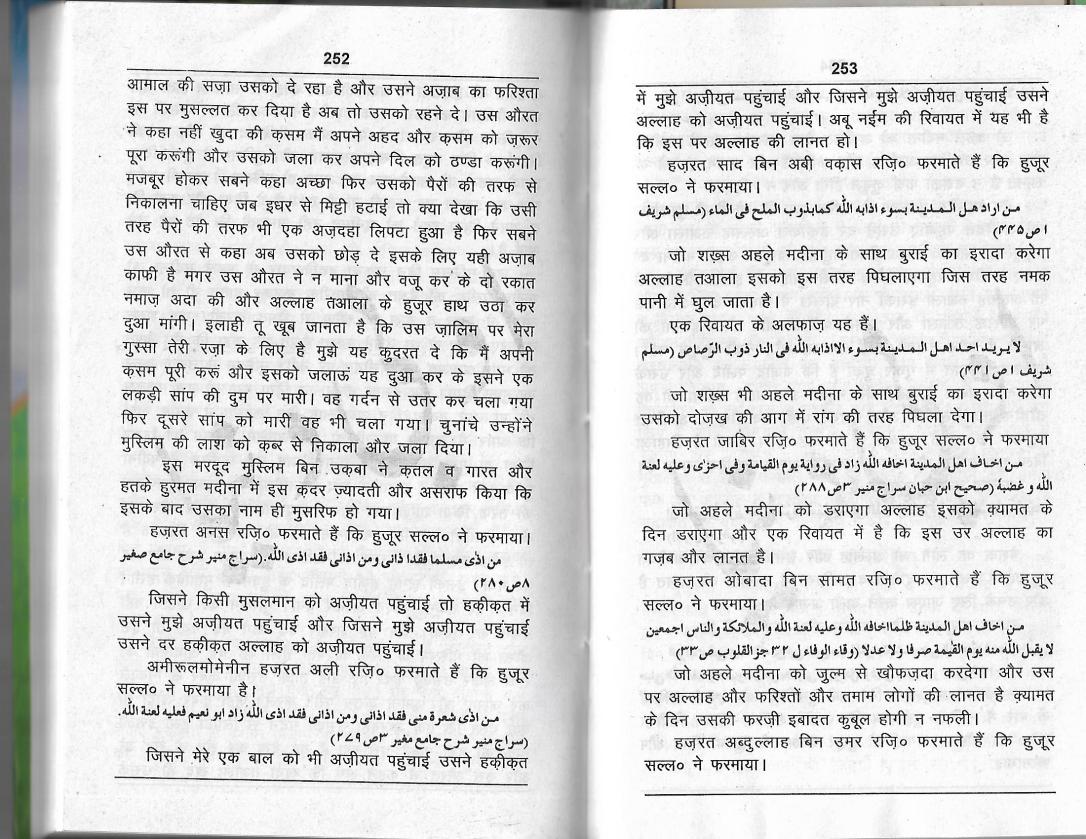 252
आमाल की सज़ा उसको दे रहा है और उसने अज़ाब का फरिश्ता
इस पर मुसल्लत कर दिया है अब तो उसको रहने दे। उस औरत
ने कहा नहीं खुदा की क़सम मैं अपने अहद और क़सम को ज़रूर
पूरा करूंगी और उसको जला कर अपने दिल को ठण्डा करूंगी।
मजबूर होकर सबने कहा अच्छा फिर उसको पैरों की तरफ से
निकालना चाहिए जब इधर से मिट्टी हटाई तो क्या देखा कि उसी
तरह पैरों की तरफ भी एक अज़दहा लिपटा हुआ है फिर सबने
उस औरत से कहा अब उसको छोड़ दे इसके लिए यही अज़ाब
काफी है मगर उस औरत ने न माना और वजू कर के दो रकात
नमाज़ अदा की और अल्लाह तआला के हुजूर हाथ उठा कर
दुआ मांगी। इलाही तू खूब जानता है कि उस ज़ालिम पर मेरा
गुस्सा तेरी रज़ा के लिए है मुझे यह कुदरत दे कि मैं अपनी
क़सम पूरी करूं और इसको जलाऊं यह दुआ कर के इसने एक
लकड़ी सांप की दुम पर मारी। वह गर्दन से उतर कर चला गया
फिर दूसरे सांप को मारी वह भी चला गया। चुनांचे उन्होंने
मुस्लिम की लाश को क़ब्र से निकाला और जला दिया।
इस मरदूद मुस्लिम बिन उक़बा ने क़तल व ग़ारत और
हतके हुरमत मदीना में इस क़दर ज़्यादती और असराफ किया कि
इसके बाद उसका नाम ही मुसरिफ हो गया।
हज़रत अनस रज़ि० फरमाते हैं कि हुजूर सल्ल० ने फरमाया।
من اذى مسلما فقدا ذانى ومن اذانى فقد اذى الله.(سراج منير شرح جامع صغير
٨ص٢٨٠)
जिसने किसी मुसलमान को अज़ीयत पहुंचाई तो हक़ीक़त में
उसने मुझे अज़ीयत पहुंचाई और जिसने मुझे अज़ीयत पहुंचाई
उसने दर हक़ीक़त अल्लाह को अज़ीयत पहुंचाई।
अमीरूलमोमेनीन हज़रत अली रज़ि० फरमाते हैं कि हुजूर
सल्ल० ने फरमाया है।
من اذى شعرة منى فقد اذانى ومن اذانى فقد اذى الله زاد ابو نعيم فعليه لعنة الله.
(سراج منير شرح جامع مغير ٣ص٢٧٩)
जिसने मेरे एक बाल को भी अज़ीयत पहुंचाई उसने हक़ीक़त
253
में मुझे अज़ीयत पहुंचाई और जिसने मुझे अज़ीयत पहुंचाई उसने
अल्लाह को अज़ीयत पहुंचाई। अबू नईम की रिवायत में यह भी है
कि इस पर अल्लाह की लानत हो।
हज़रत साद बिन अबी वक़ास रज़ि० फरमाते हैं कि हुजूर
सल्ल० ने फरमाया।
من اراد هل المدينة بسوء اذابه الله كمابذوب الملح فى الماء (مسلم شريف
١ص٤٤٥)
जो शख़्स अहले मदीना के साथ बुराई का इरादा करेगा
अल्लाह तआला इसको इस तरह पिघलाएगा जिस तरह नमक
पानी में घुल जाता है।
एक रिवायत के अलफाज़ यह हैं।
لا يريد احد اهل المدينة بسوء الااذابه الله فى النار ذوب الرّصاص (مسلم
شريف ١ص٤٤١)
जो शख़्स भी अहले मदीना के साथ बुराई का इरादा करेगा
उसको दोज़ख की आग में रांग की तरह पिघला देगा।
हज़रत जाबिर रज़ि० फरमाते हैं कि हुजूर सल्ल० ने फरमाया
من اخاف اهل المدينة اخافه الله زاد فى رواية يوم القيامة وفى احزى وعليه لعنة
الله و غضبة (صحيح ابن حبان سراج منير ٣ص٢٨٨)
जो अहले मदीना को डराएगा अल्लाह इसको क़्यामत के
दिन डराएगा और एक रिवायत में है कि इस उर अल्लाह का
गज़ब और लानत है।
हज़रत ओबादा बिन सामत रज़ि० फरमाते हैं कि हुजूर
सल्ल० ने फरमाया।
من اخاف اهل المدينة ظلمااخافه الله وعليه لعنة الله والملائكة والناس اجمعين
لا يقبل الله منه يوم القيمة صرفا ولا عدلا (وفاء الوفاء ل ٣٢ جز القلوب ص٣٣)
जो अहले मदीना को जुल्म से खौफज़दा करदेगा और उस
पर अल्लाह और फरिश्तों और तमाम लोगों की लानत है क़्यामत
के दिन उसकी फरज़ी इबादत कुबूल होगी न नफली।
हज़रत अब्दुल्लाह बिन उमर रज़ि० फरमाते हैं कि हुजूर
सल्ल० ने फरमाया।